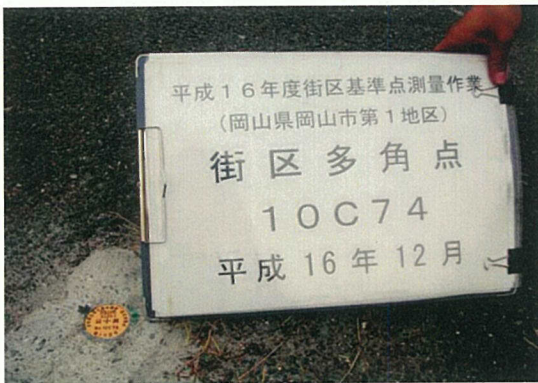 平成１６年度街区基準点測量作業
（岡山県岡山市第１地区）
街区多角点
１０Ｃ７４
平成 16 年 12 月